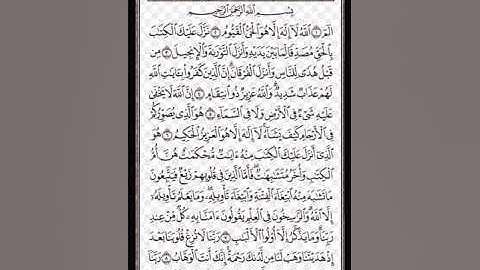 بِسْمِ ٱللَّهِ ٱلرَّحْمَٰنِ ٱلرَّحِيمِ
الٓمٓ ١ ٱللَّهُ لَآ إِلَٰهَ إِلَّا هُوَ ٱلْحَىُّ ٱلْقَيُّومُ ٢ نَزَّلَ عَلَيْكَ ٱلْكِتَٰبَ
بِٱلْحَقِّ مُصَدِّقًا لِّمَا بَيْنَ يَدَيْهِ وَأَنزَلَ ٱلتَّوْرَىٰةَ وَٱلْإِنجِيلَ ٣ مِن
قَبْلُ هُدًى لِّلنَّاسِ وَأَنزَلَ ٱلْفُرْقَانَ إِنَّ ٱلَّذِينَ كَفَرُوا۟ بِـَٔايَٰتِ ٱللَّهِ
لَهُمْ عَذَابٌ شَدِيدٌ وَٱللَّهُ عَزِيزٌ ذُو ٱنتِقَامٍ ٤ إِنَّ ٱللَّهَ لَا يَخْفَىٰ
عَلَيْهِ شَىْءٌ فِى ٱلْأَرْضِ وَلَا فِى ٱلسَّمَآءِ ٥ هُوَ ٱلَّذِى يُصَوِّرُكُمْ
فِى ٱلْأَرْحَامِ كَيْفَ يَشَآءُ لَآ إِلَٰهَ إِلَّا هُوَ ٱلْعَزِيزُ ٱلْحَكِيمُ ٦ هُوَ
ٱلَّذِىٓ أَنزَلَ عَلَيْكَ ٱلْكِتَٰبَ مِنْهُ ءَايَٰتٌ مُّحْكَمَٰتٌ هُنَّ أُمُّ
ٱلْكِتَٰبِ وَأُخَرُ مُتَشَٰبِهَٰتٌ فَأَمَّا ٱلَّذِينَ فِى قُلُوبِهِمْ زَيْغٌ فَيَتَّبِعُونَ
مَا تَشَٰبَهَ مِنْهُ ٱبْتِغَآءَ ٱلْفِتْنَةِ وَٱبْتِغَآءَ تَأْوِيلِهِۦ وَمَا يَعْلَمُ تَأْوِيلَهُۥٓ
إِلَّا ٱللَّهُ وَٱلرَّٰسِخُونَ فِى ٱلْعِلْمِ يَقُولُونَ ءَامَنَّا بِهِۦ كُلٌّ مِّنْ عِندِ
رَبِّنَا وَمَا يَذَّكَّرُ إِلَّآ أُو۟لُوا۟ ٱلْأَلْبَٰبِ ٧ رَبَّنَا لَا تُزِغْ قُلُوبَنَا بَعْدَ
إِذْ هَدَيْتَنَا وَهَبْ لَنَا مِن لَّدُنكَ رَحْمَةً إِنَّكَ أَنتَ ٱلْوَهَّابُ ٨ رَبَّنَآ